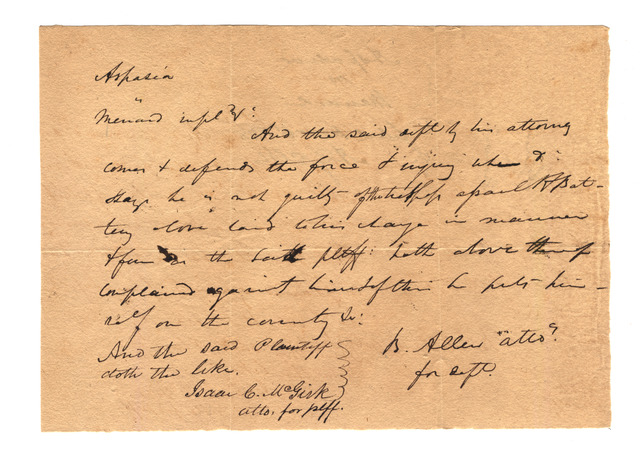 Aspasia
vs
Menard impl &c:
And the said deft by his attorney
comes & defends the force & injury when &:
says he is not guilty of the trespass assault & Bat-
tery above laid to his charge in manner
& form as the said pltff: hath above thereof
complained against himself then he puts him-
self on the country &c:
B. Allen "atto".
for deft.
And the said Plaintiff
doth the like.
Isaac C. McGirk
atto. for plff.